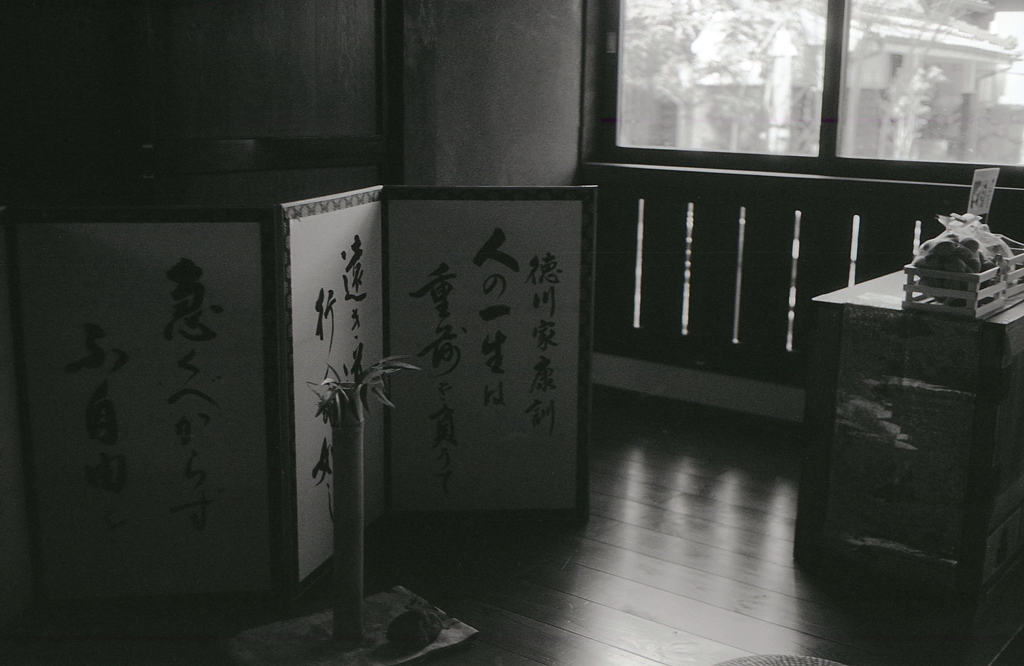 徳川家康訓
人の一生は
重荷を負うて
遠き道
行
急くべからす
不自由を